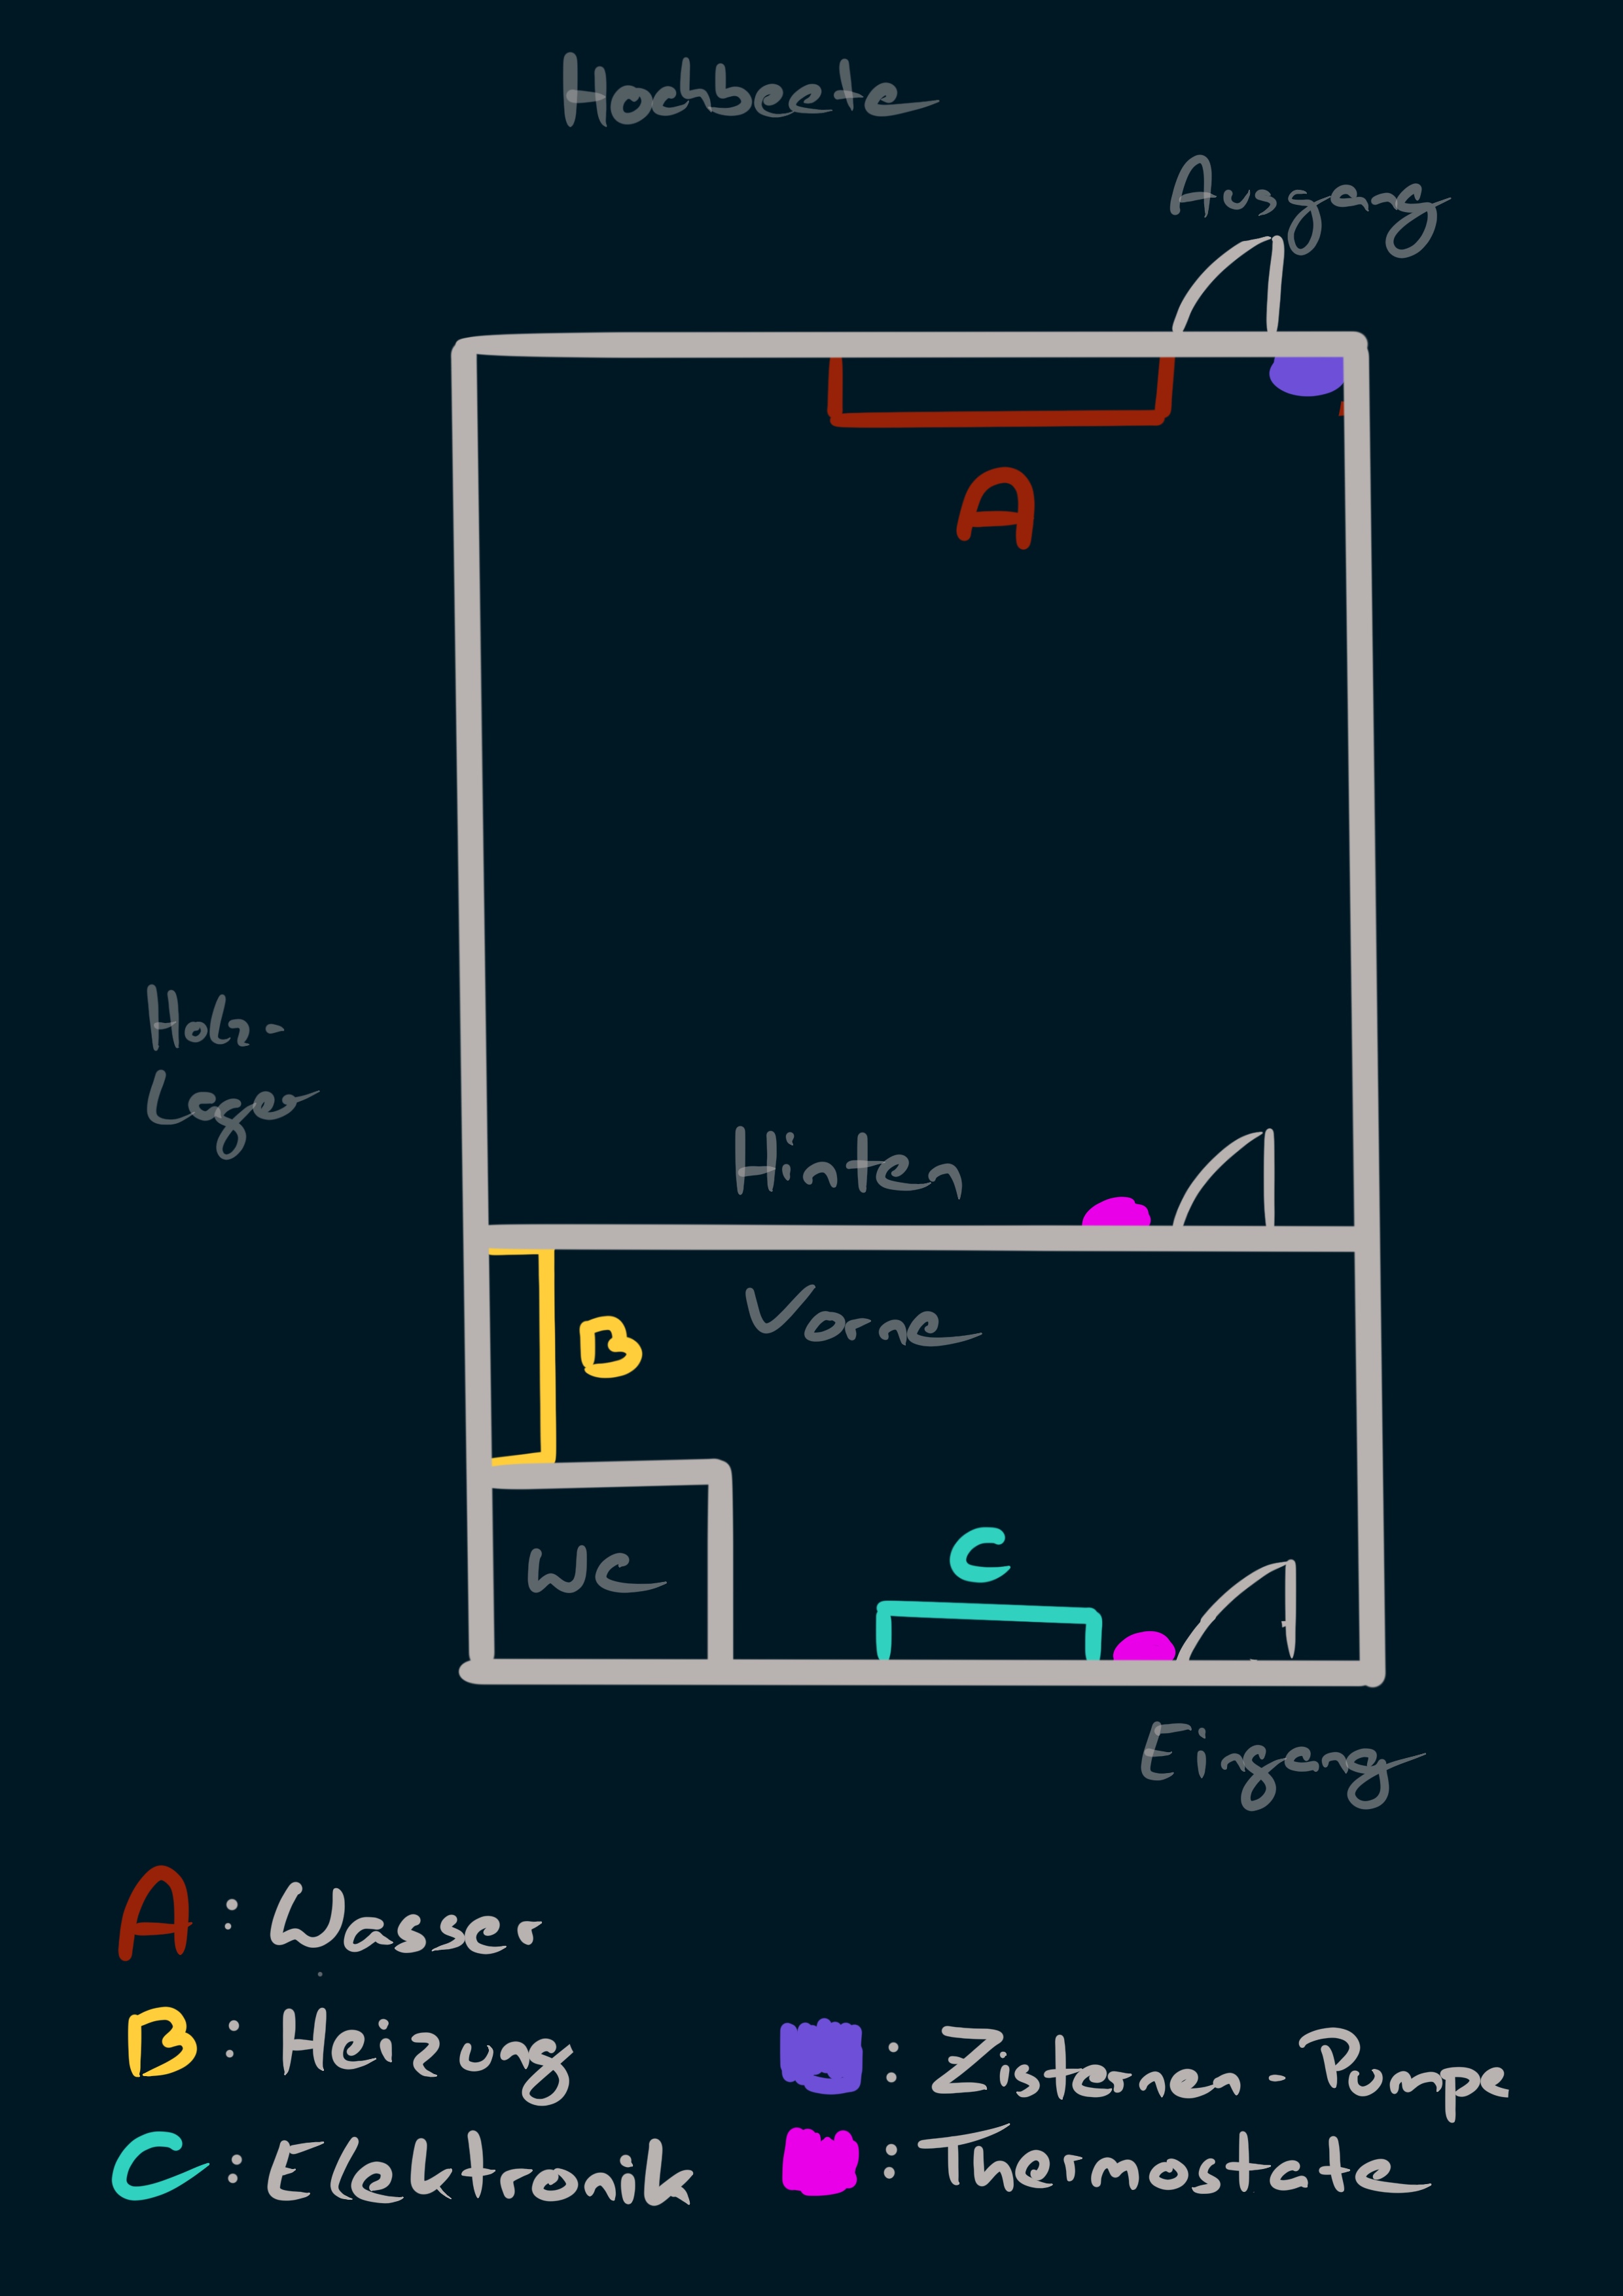 Hochbeete
Ausgang
A
Holz-
Lager
Hinten
B
Vorne
WC
C
Eingang
A: Wasser
B: Heizung
C: Elektronik
: Zisternen-Pumpe
: Thermostate